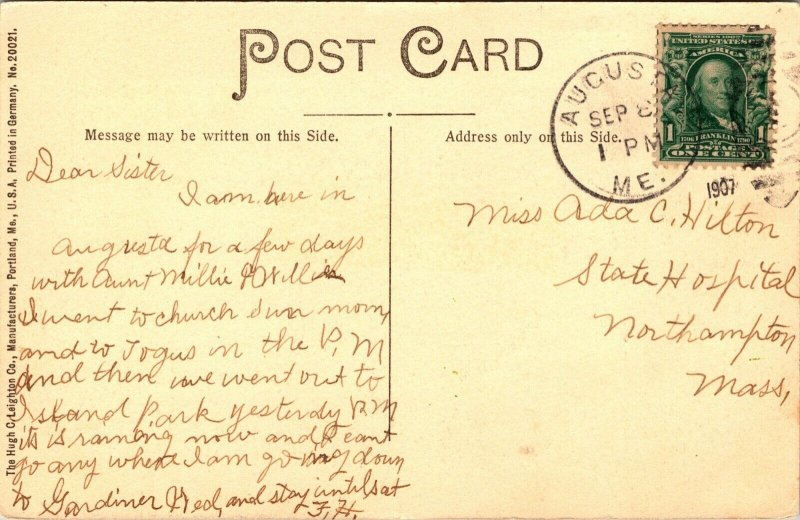 POST CARD
Message may be written on this Side.
Address only on this Side.
SERIES 1902
UNITED STATES OF
AMERICA
1706 FRANKLIN 1790
1 POSTAGE 1
ONE CENT
AUGUSTA
SEP
1 PM
ME.
1907
Dear Sister
I am here in
Augusta for a few days
with Aunt Millie & Willie
I went to church Sun morn,
and to Togus in the P. M
and then we went out to
Island Park yesterday P.M
its is raining now and I cant
go any where I am going down
to Gardiner Wed, and stay until sat
F. H.
Miss Ada C. Hilton
State Hospital
Northampton
Mass,
The Hugh C. Leighton Co., Manufacturers, Portland, Me., U.S.A. Printed in Germany. No. 20021.